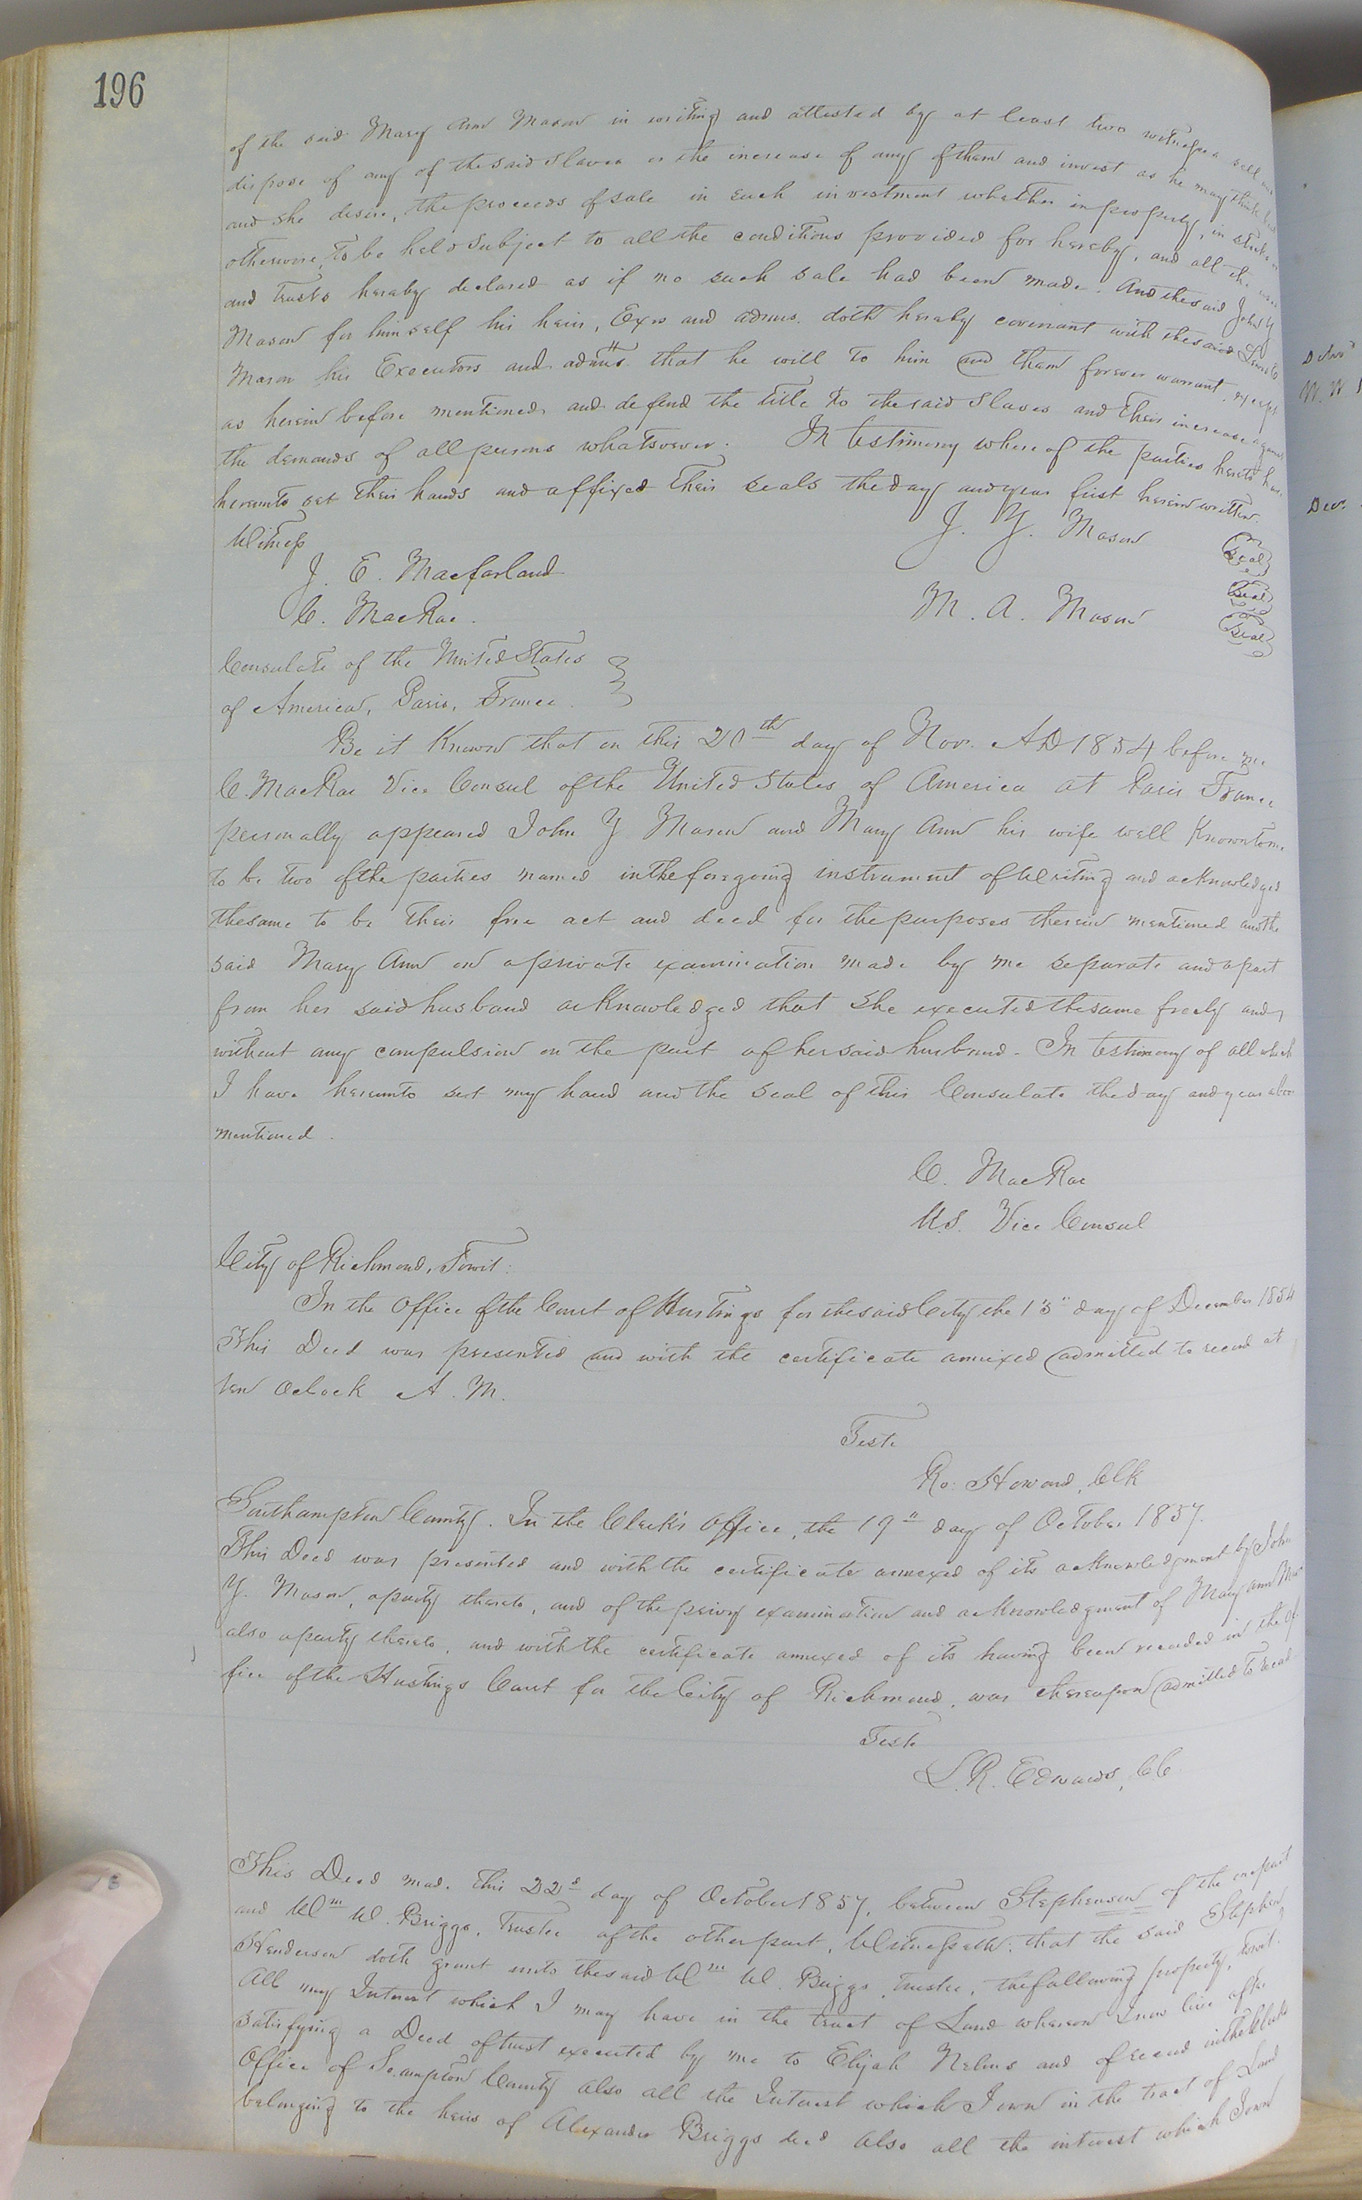 196
of the said Mary Ann Mason in writing and attested by at least two witnesses sell and
dispose of any of the said slaves or the increase of any of them and invest as he may think best
and she desire, the proceeds of sale in such investment whether in property, in stocks or
otherwise, to be held subject to all the conditions provided for hereby, and all the uses
and trusts hereby declared as if no such sale had been made. And the said John Y
Mason for himself his heirs, Exrs and admrs. doth hereby covenant with the said
Mason his Executors and admrs that he will to him and them forever warrant, except
as herein before mentioned and defend the title to the said slaves and their increase against
the demands of all persons whatsoever. In testimony whereof the parties hereto have
hereunto set their hands and affixed their seals the day and year first herein written.
Witness
J. Y. Mason Seal
J. E. Macfarland
Seal
C. MacRae.
M. A. Mason Seal
Consulate of the United States
of America, Paris, France.
Be it Known that on this 20th day of Nov. AD 1854 before me
C. MacRae Vice Consul of the United States of America at Paris France
personally appeared John Y Mason and Mary Ann his wife well Known to me
to be two of the parties named in the foregoing instrument of Writing and acknowledged
the same to be their free act and deed for the purposes therein mentioned and the
said Mary Ann on a private examination made by me separate and apart
from her said husband acknowledged that she executed the same freely and
without any compulsion on the part of her said husband. In testimony of all which
I have hereunto set my hand and the seal of this Consulate the day and year above
mentioned.
C. MacRae
U.S. Vice Consul
City of Richmond, Towit:
In the Office of the Court of Hustings for the said City the 13" day of December 1854
This Deed was presented and with the certificate annexed admitted to record at
ten Oclock A. M.
Teste
Ro: Howard, Clk
Southampton County. In the Clerk's Office, the 19" day of October 1857.
This Deed was presented and with the certificate annexed of its acknowledgment by John
Y. Mason, a party thereto, and of the privy examination and acknowledgment of Mary Ann
also a party thereto, and with the certificate annexed of its having been recorded in the of
fice of the Hustings Court for the City of Richmond, was thereupon admitted to record
Teste
L. R. Edwards, CC
This Deed made this 22d day of October 1857, between Stephenson of the one part
and Wm W. Briggs, Trustee of the other part, Witnesseth: that the said Stephen
Henderson doth grant unto the said Wm W. Briggs trustee, the following property, towit.
All my Interest which I may have in the tract of Land whereon I now live after
satisfying a Deed of trust executed by me to Elijah Nelms and of record in the Clerks
Office of So.ampton County also all the Interest which I own in the tract of Land
belonging to the heirs of Alexander Briggs decd also all the interest which I own